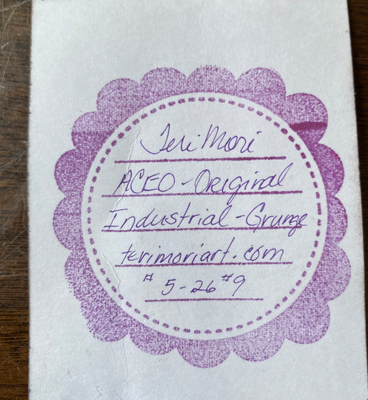 Teri Mori
ACEO-Original
Industrial-Grunge
terimoriart.com
# 5-26 #9